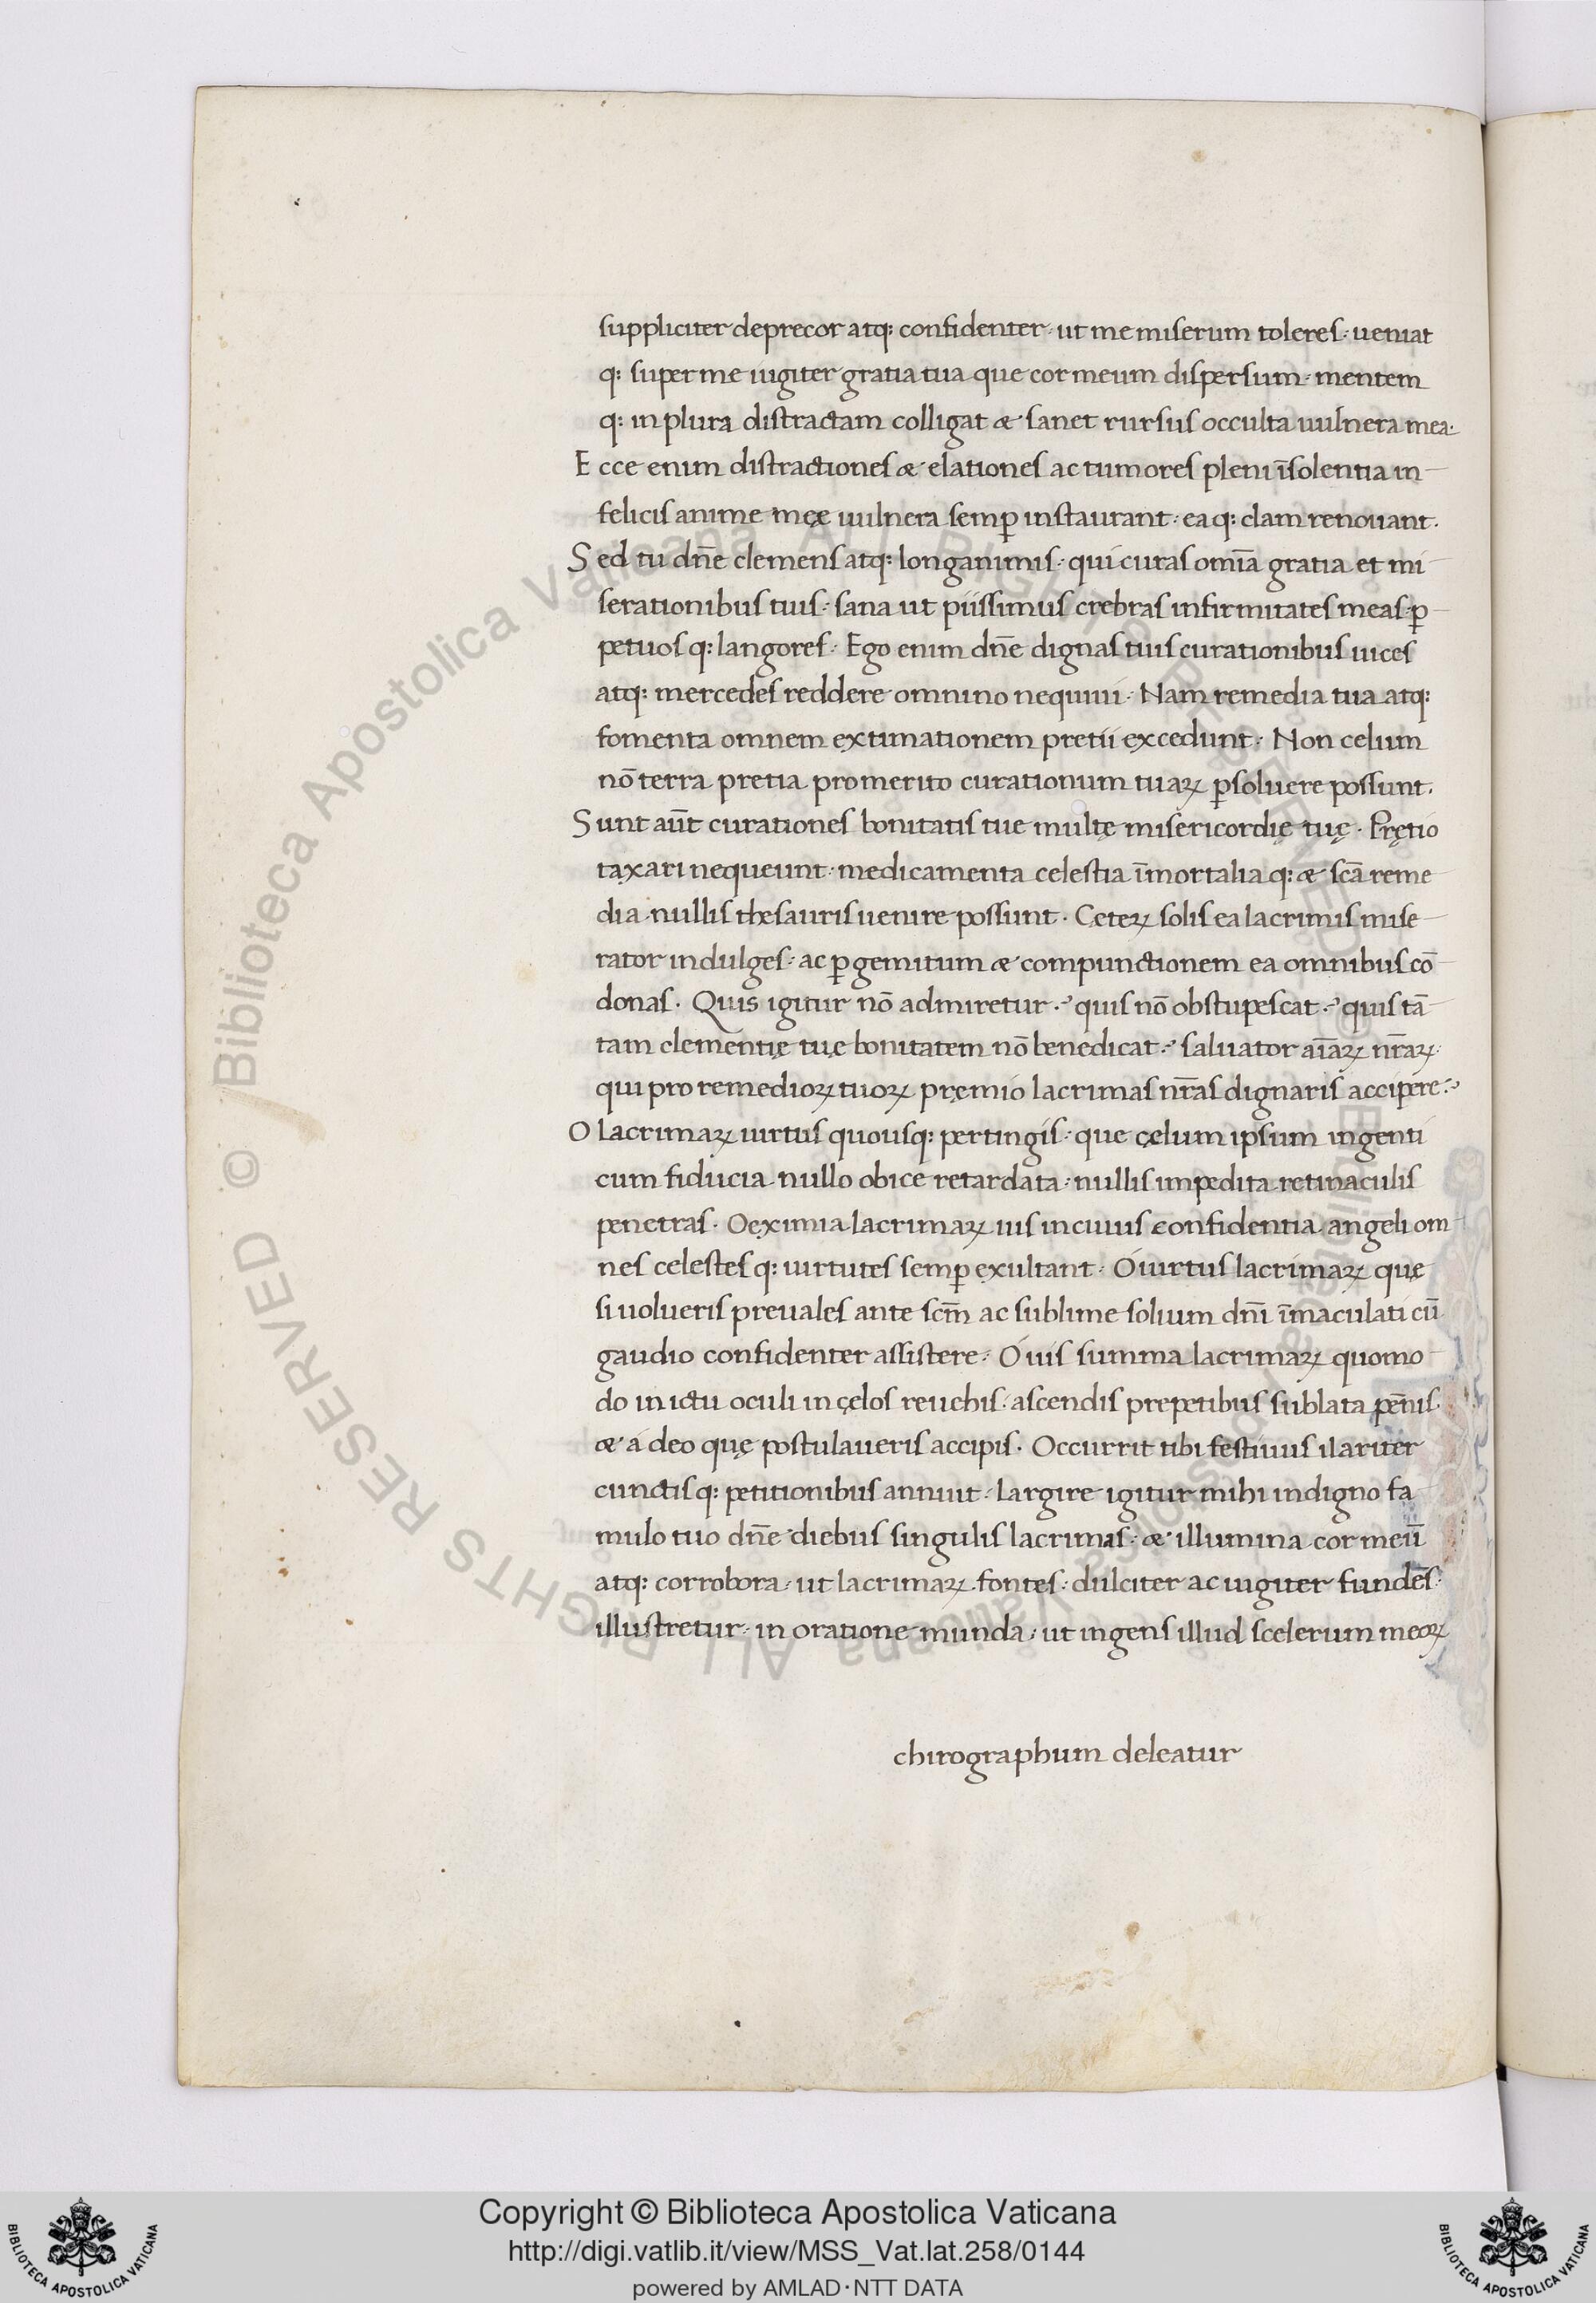 suppliciter deprecor atq: confidenter· ut me miserum toleres· ueniat
q: super me iugiter gratia tua que cor meum dispersum· mentem
q: in plura distractam colligat & sanet rursus occulta uulnera mea·
Ecce enim distractiones & elationes ac tumores pleni īsolentia in
felicis anime męę uulnera semꝑ instaurant· ea q: clam renouant.
Sed tu dn̄e clemens atq: longanimis· qui curas omīa gratia et mi
serationibus tuis· sana ut piissimus crebras infirmitates meas ꝑ
petuos q: langores· Ego enim dn̄e dignas tuis curationibus uices
atq: mercedes reddere omnino nequiui· Nam remedia tua atq:
fomenta omnem extimationem pretii excedunt· Non celum
nō terra pretia pro merito curationum tuaꝝ ꝑsoluere possunt.
Sunt aūt curationes bonitatis tue multę misericordię tuę· Prętio
taxari nequeunt· medicamenta celestia īmortalia q: & scā reme
dia nullis thesauris uenire possunt· Ceteꝝ solis ea lacrimis mise
rator indulges· ac ꝑ gemitum & compunctionem ea omnibus cō
donas· Quis igitur nō admiretur? quis nō obstupescat? quis tā
tam clementię tuę bonitatem nō benedicat? saluator aīaꝝ nr̄aꝝ·
qui pro remedioꝝ tuoꝝ pręmio lacrimas nr̄as dignaris accipere?
O lacrimaꝝ uirtus quousq: pertingis· que çelum ipsum ingenti
cum fiducia nullo obice retardata· nullis impedita retinaculis
penetras· O eximia lacrimaꝝ uis in cuius confidentia angeli om
nes celestes q: uirtutes semꝑ exultant· Ó uirtus lacrimaꝝ quę
si uolueris preuales ante scm̄ ac sublime solium dnī īmaculati cū
gaudio confidenter assistere· Ó uis summa lacrimaꝝ quomo
do in ictu oculi in çelos reuehis· ascendis prepetibus sublata pēnis·
& a deo quę postulaueris accipis· Occurrit tibi festiuus ilariter
cunctis q: petitionibus annuit· Largire igitur mihi indigno fa
mulo tuo dn̄e diebus singulis lacrimas· & illumina cor meū
atq: corrobora· ut lacrimaꝝ fontes· dulciter ac iugiter fundēs·
illustretur· in oratione munda· ut ingens illud scelerum meoꝝ
chirographum deleatur
© Biblioteca Apostolica Vaticana ALL RIGHTS RESERVED © Biblioteca Apostolica Vaticana ALL RIGHTS RESERVED
BIBLIOTECA APOSTOLICA VATICANA
Copyright © Biblioteca Apostolica Vaticana
http://digi.vatlib.it/view/MSS_Vat.lat.258/0144
powered by AMLAD·NTT DATA
BIBLIOTECA APOSTOLICA VATICANA